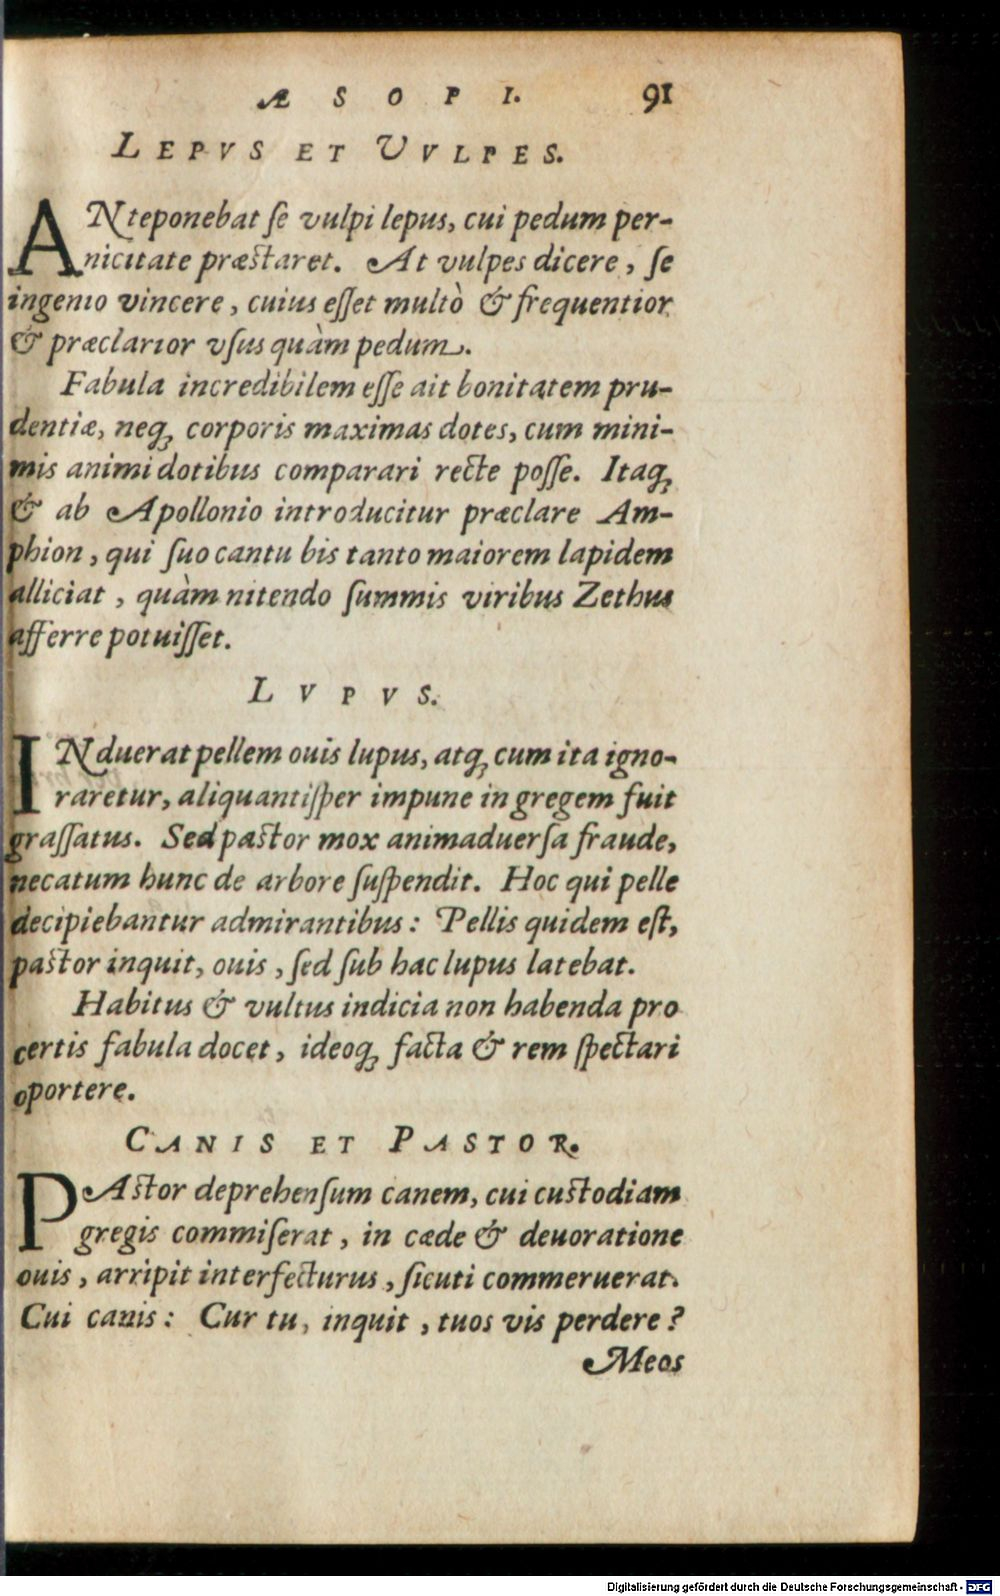 ÆSOPI. 91
LEPVS ET VVLPES.
ANteponebat ſe vulpi lepus, cui pedum per-
nicitate præstaret. At vulpes dicere, ſe
ingenio vincere, cuius eſſet multò & frequentior
& præclarior vſus quàm pedum.
Fabula incredibilem eſſe ait bonitatem pru-
dentiæ, neq; corporis maximas dotes, cum mini-
mis animi dotibus comparari recte poſſe. Itaq;
& ab Apollonio introducitur præclare Am-
phion, qui ſuo cantu bis tanto maiorem lapidem
alliciat, quàm nitendo ſummis viribus Zethus
afferre potuiſſet.
LVPVS.
INduerat pellem ouis lupus, atq; cum ita igno-
raretur, aliquantiſper impune in gregem fuit
graſſatus. Sed pastor mox animaduerſa fraude,
necatum hunc de arbore ſuſpendit. Hoc qui pelle
decipiebantur admirantibus: Pellis quidem eſt,
pastor inquit, ouis, ſed ſub hac lupus latebat.
Habitus & vultus indicia non habenda pro
certis fabula docet, ideoq; facta & rem ſpectari
oportere.
CANIS ET PASTOR.
PAstor deprehenſum canem, cui custodiam
gregis commiſerat, in cæde & deuoratione
ouis, arripit interfecturus, ſicuti commeruerat.
Cui canis: Cur tu, inquit, tuos vis perdere?
Meos
Digitalisierung gefördert durch die Deutsche Forschungsgemeinschaft - DFG